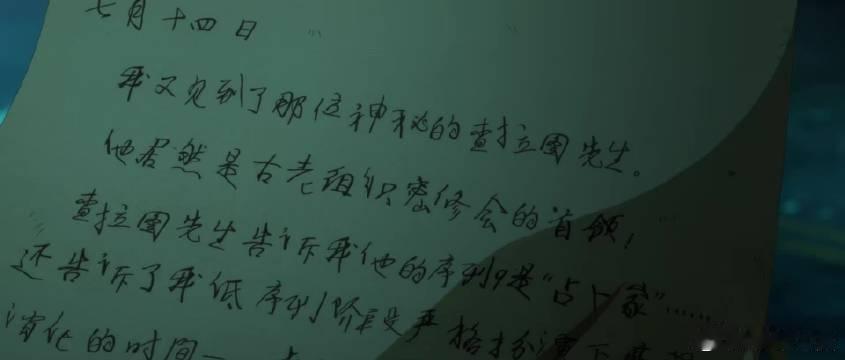 七月十四日
我又见到了那位神秘的查拉图先生。
他居然是古老组织密修会的首领，
查拉图先生告诉我他的序列9是“占卜家”……
还告诉了我低序列阶段严格按
消化的时间